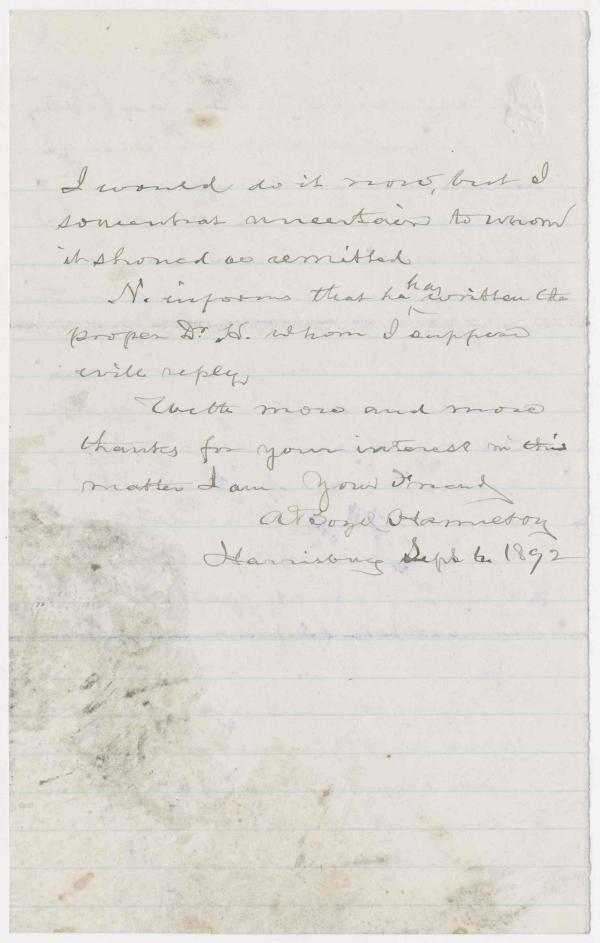 I would do it now, but I
somewhat uncertain to whom
it should be remitted
N. informs that he has written the
proper Dr. H. whom I suppose
will reply,
With more and more
thanks for your interest in this
matter I am Your Friend
A Boyd Hamilton
Harrisburg Sept 6. 1892